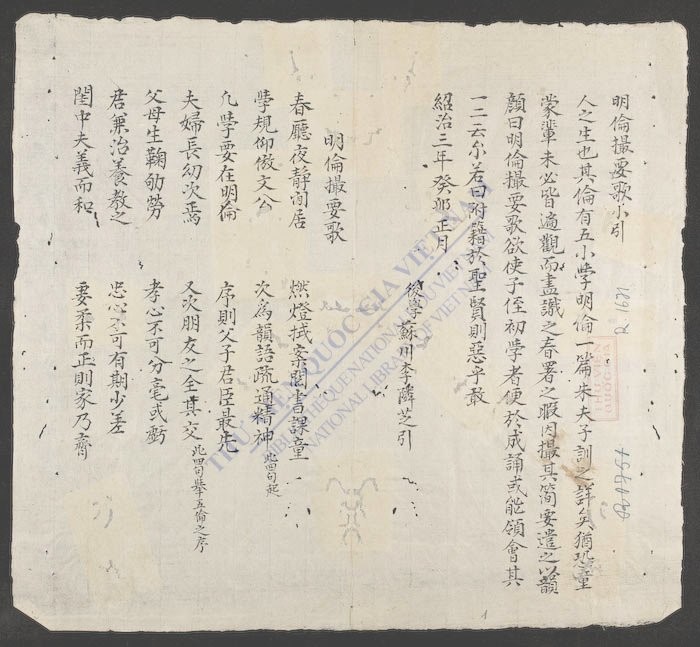 明倫撮要歌小引
人之生也其倫有五小學明倫一篇朱夫子訓之詳矣猶恐童
蒙輩未必皆遍觀而盡識之春署之暇因撮其簡要遣之以韻
顏曰明倫撮要歌欲使子侄初學者便於成誦或能領會其
一二云尔若曰附籍於聖賢則惡乎敢
紹治三年癸卯正月
後學蘇川李隣芝引
明倫撮要歌
春廳夜静閒居 燃燈拭案閱書課童
學規仰倣文公 次為韻語疏通精神 此四句起
凢學要在明倫 序則父子君臣最先
夫婦長幼次焉 又次朋友之全其交 此四句舉五倫之序
父母生鞠劬勞 孝心不可分毫或虧
君兼治養教之 忠心不可有期少差
閨中夫義而和 妻柔而正則家乃齊
THƯ VIỆN QUỐC GIA VIỆT NAM
BIBLIOTHÈQUE NATIONALE DU VIETNAM
NATIONAL LIBRARY OF VIETNAM
R 1621
1